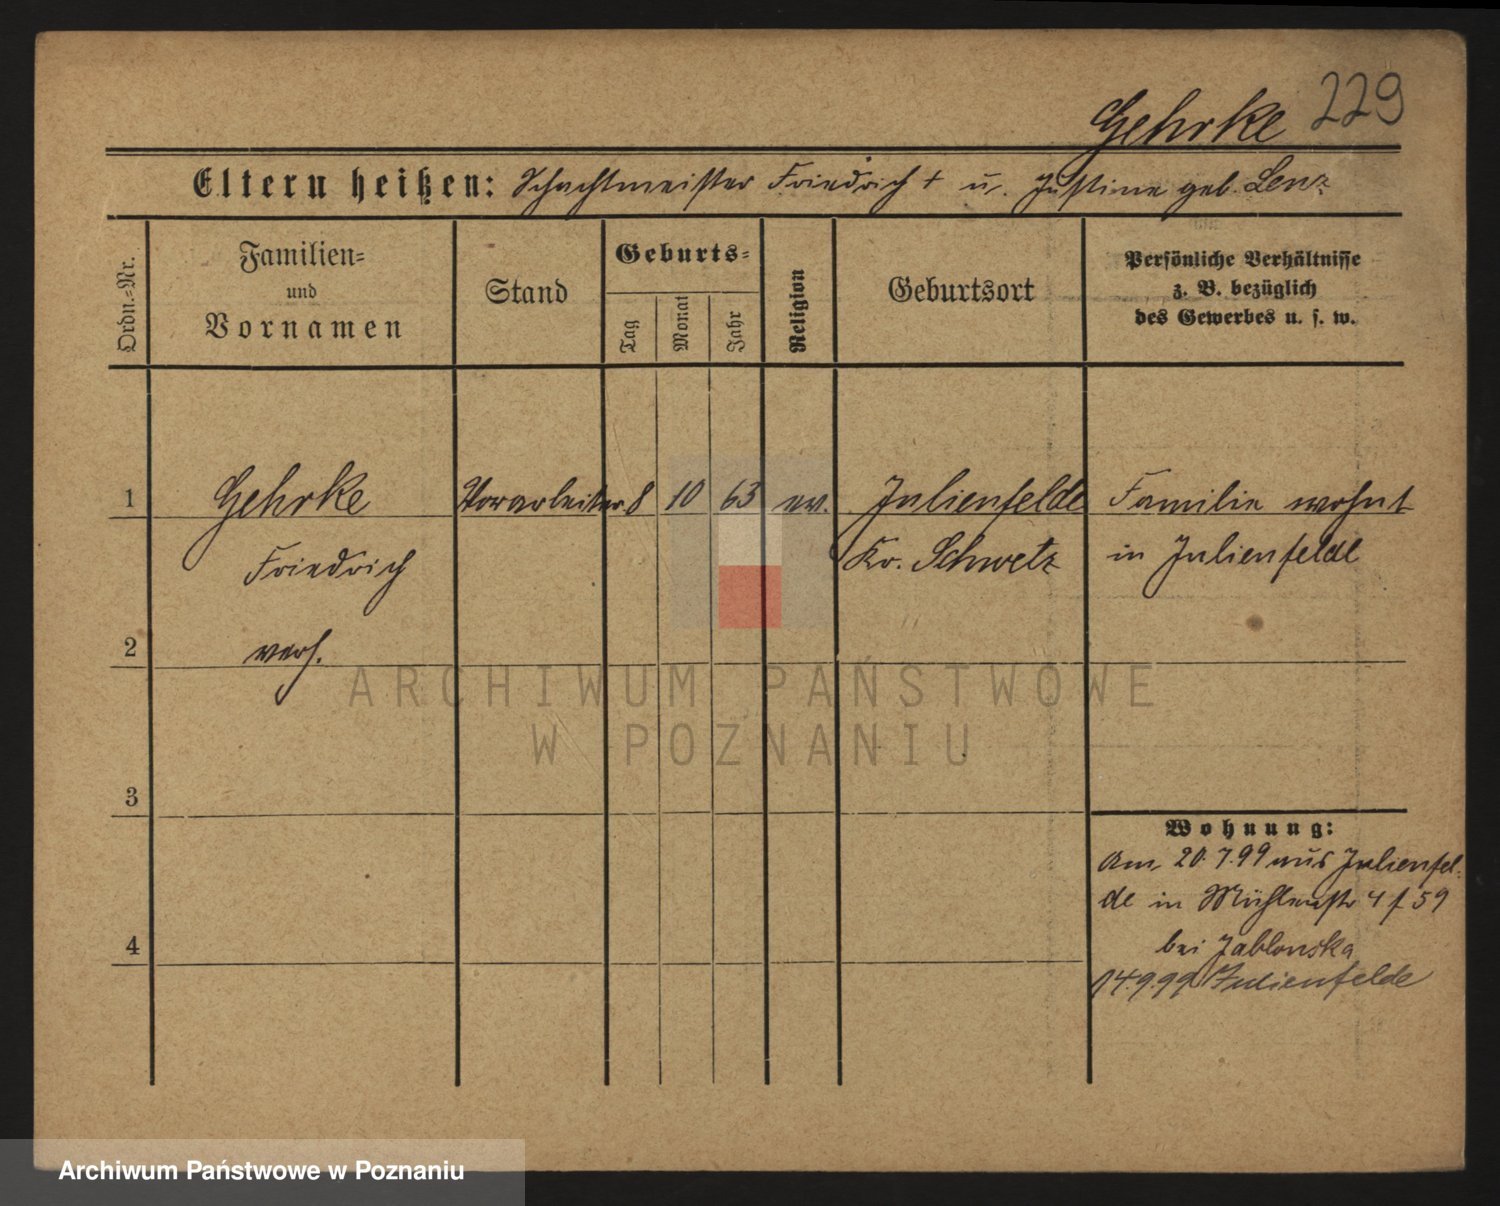 Gehrke 229
Eltern heißen: Schachtmeister Friedrich + u. Justine geb. Lenz
Ordn.=Nr.
Familien=
und
Vornamen
Stand
Geburts=
Tag
Monat
Jahr
Religion
Geburtsort
Persönliche Verhältnisse
z. B. bezüglich
des Gewerbes u. s. w.
1 Gehrke Vorarbeiter 8 10 63 ev. Julienfelde Familie wohnt
Friedrich Kr. Schwetz in Julienfelde
2 verh.
3
Wohnung:
Am 20.7.99 aus Julienfel-
de in Mühlenstr 4 f 59
4 bei Jablonska
14.9.99 Julienfelde
ARCHIWUM PAŃSTWOWE
W POZNANIU
Archiwum Państwowe w Poznaniu